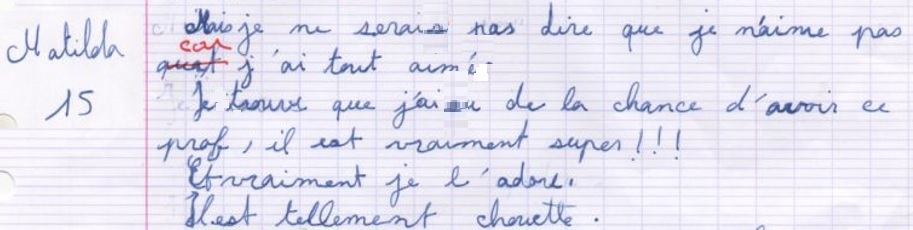 Matilda
15
Mais je ne serais pas dire que je n'aime pas
car
j'ai tout aimé
Je trouve que j'ai eu de la chance d'avoir ce
prof, il est vraiment super!!!
Et vraiment je l'adore.
Il est tellement chouette.